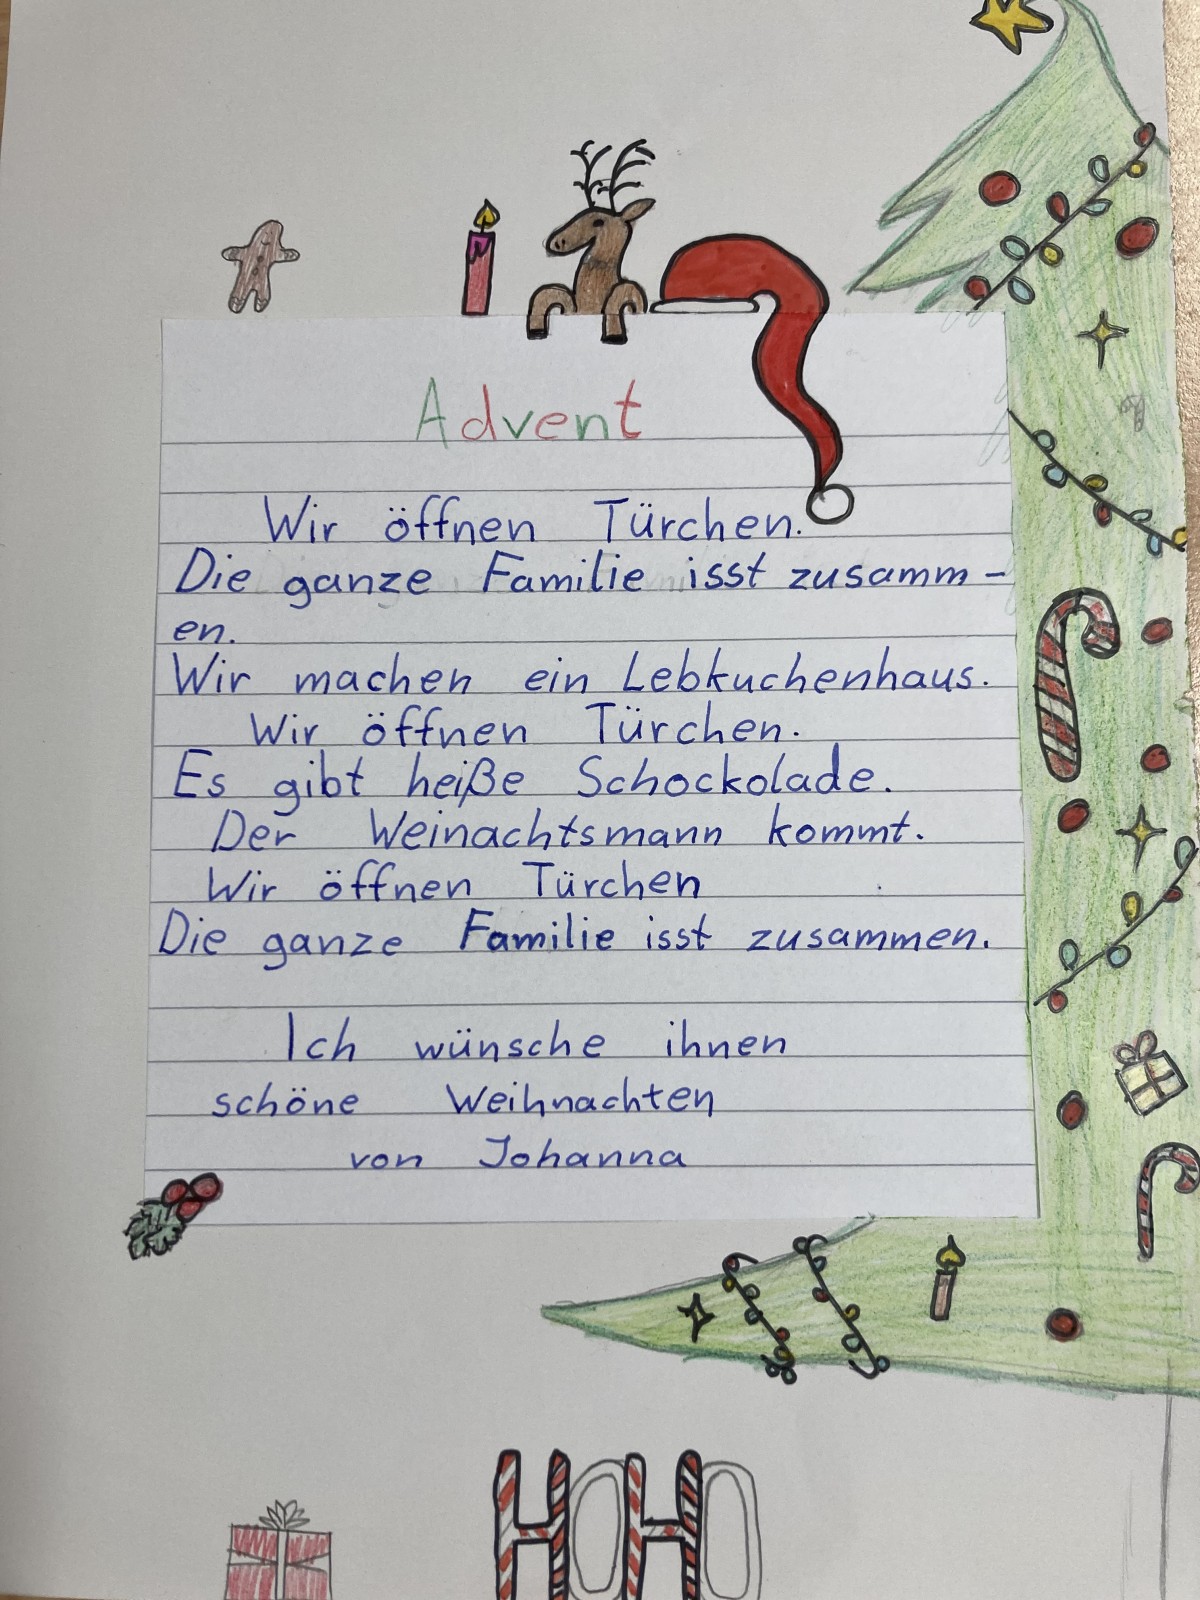 Advent
Wir öffnen Türchen.
Die ganze Familie isst zusamm-
en.
Wir machen ein Lebkuchenhaus.
Wir öffnen Türchen.
Es gibt heiße Schockolade.
Der Weinachtsmann kommt.
Wir öffnen Türchen
Die ganze Familie isst zusammen.
Ich wünsche ihnen
schöne Weihnachten
von Johanna
HOHO